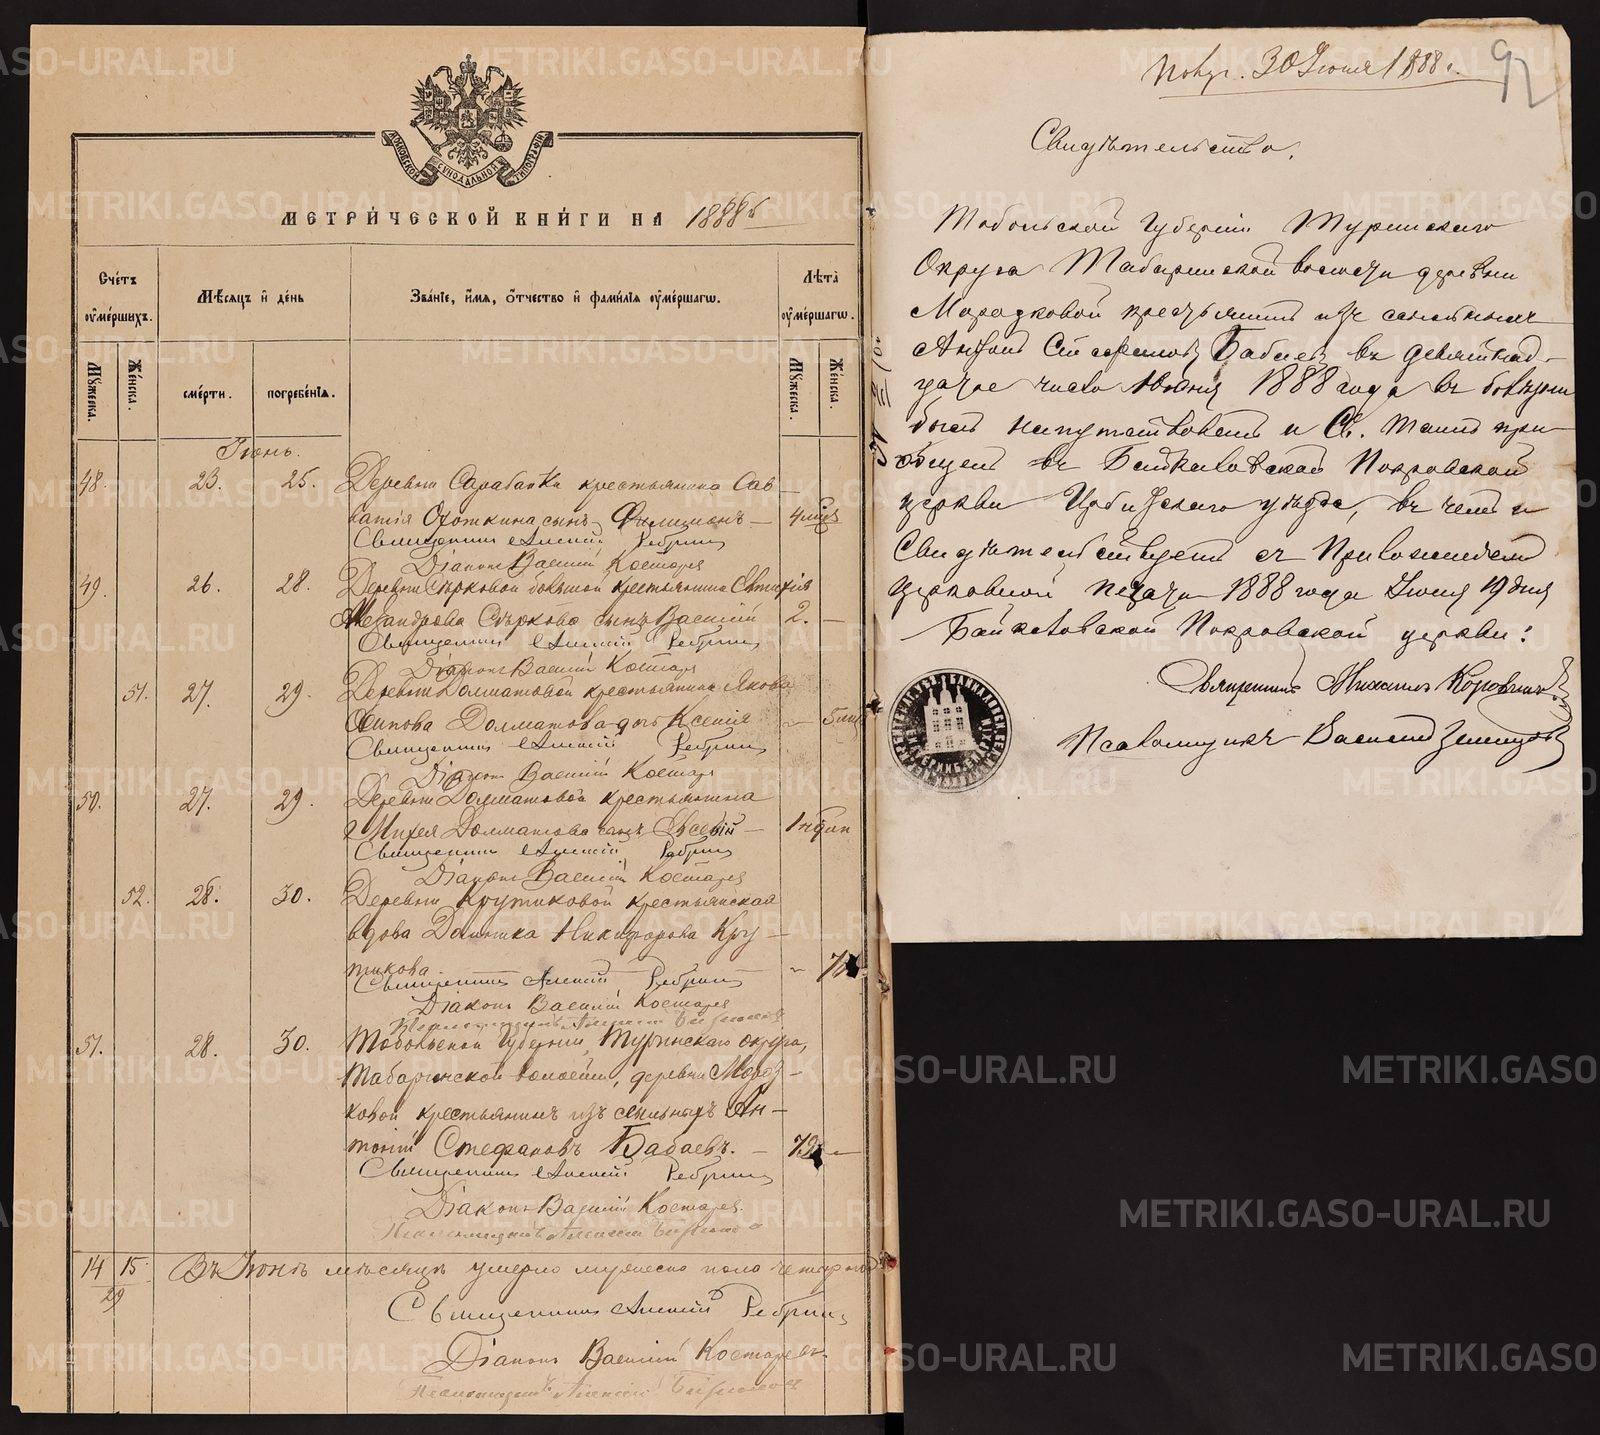 МЕТРИ́ЧЕСКОЙ КНИ́ГИ НА 1888 г.
Сче́тъ ѹ҆ме́ршихъ.
Мѣ́сѧцъ и҆ де́нь
Зва́нїе, и҆́мѧ, ѻ҆́тчество и҆ фами́лїѧ ѹ҆ме́ршагѡ.
Лѣ́та ѹ҆ме́ршагѡ.
Мꙋ́жеска.
Же́нска.
сме́рти.
погребе́нїѧ.
Мꙋ́жеска.
Же́нска.
Іюнь.
48. 23. 25. Деревни Сарабайки крестьянина Сав-
ватія Охоткина сынъ Филимонъ — 4 мѣс
Священникъ Алексій Ребринъ
Діаконъ Василій Костаревъ
49. 26. 28. Деревни Сѣрковой большой крестьянина
Александрова Сѣркова сынъ Василій 2. —
Священникъ Алексій Ребринъ
Діаконъ Василій Костаревъ
51. 27. 29. Деревни Долматовой крестьянина Якова
Осипова Долматова дочь Ксенія — 5 мѣс
Священникъ Алексій Ребринъ
Діаконъ Василій Костаревъ
50. 27. 29. Деревни Долматовой крестьянина
Михея Долматова сынъ Евсевій — 1
Священникъ Алексій Ребринъ
Діаконъ Василій Костаревъ
52. 28. 30. Деревни Крутиковой крестьянская
вдова Домника Никифорова Кру-
тикова —
Священникъ Алексій Ребринъ
Діаконъ Василій Костаревъ
Псаломщикъ Алексій
51. 28. 30. Тобольской Губерніи, Туринскаго округа,
Табаринской волости, деревни Мород-
ковой крестьянинъ изъ ссыльныхъ Ан-
тоній Стефановъ Бабаевъ. —
Священникъ Алексій Ребринъ
Діаконъ Василій Костаревъ.
Псаломщикъ Алексій
14 15 Въ Іюнѣ мѣсяцѣ умерло мужеска пола четырнад
29
Священникъ Алексій Ребринъ
Діаконъ Василій Костаревъ.
Псаломщикъ Алексій
Получ. 30 Іюня 1888 г.
92
Свидѣтельство.
Тобольской Губерніи Туринскаго
Округа Табаринской волости деревни
Мородковой крестьянинъ изъ ссыльныхъ
Антоній Стефановъ Бабаевъ въ девятнад-
цатое число Іюня 1888 года въ болѣзни
былъ напутствованъ и Св. Таинъ прі-
общенъ въ Байкаловской Покровской
церкви Ирбитскаго уѣзда, въ чемъ и
Свидѣтельствуемъ съ Приложеніемъ
церковной печати 1888 года Іюня 19 дня
Байкаловской Покровской церкви:
Священникъ Михаилъ Коровинъ
Псаломщикъ Василій
METRIKI.GASO-URAL.RU